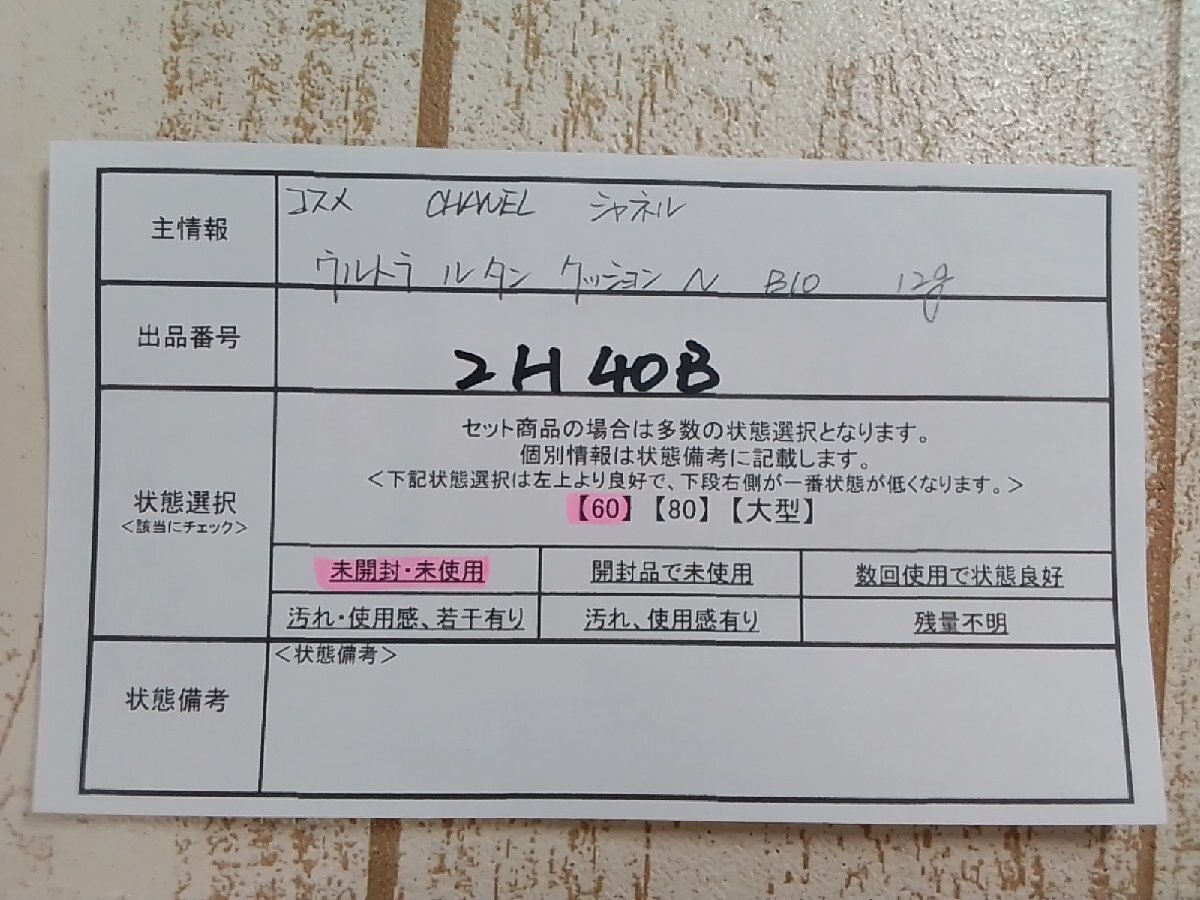 主情報
コスメ CHANEL シャネル
ウルトラ ル タン クッション N B10 12g
出品番号
2H40B
状態選択
<該当にチェック>
セット商品の場合は多数の状態選択となります。
個別情報は状態備考に記載します。
<下記状態選択は左上より良好で、下段右側が一番状態が低くなります。>
【60】【80】【大型】
未開封・未使用 開封品で未使用 数回使用で状態良好
汚れ・使用感、若干有り 汚れ、使用感有り 残量不明
状態備考
<状態備考>